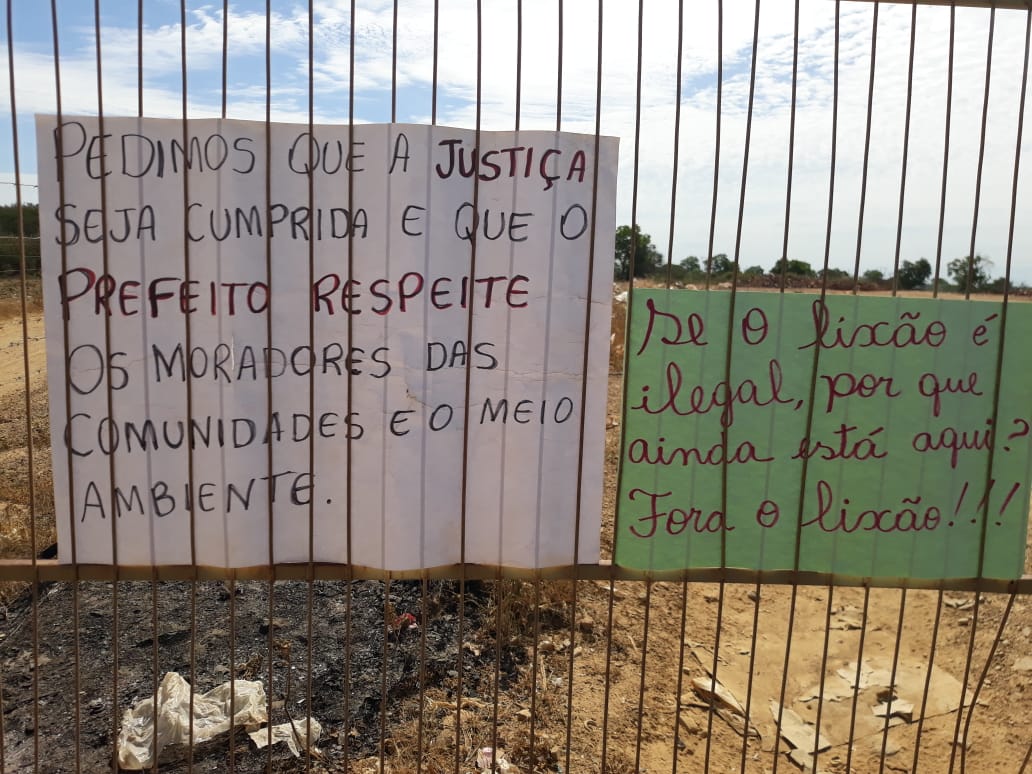 PEDIMOS QUE A JUSTIÇA
SEJA CUMPRIDA E QUE O
PREFEITO RESPEITE
OS MORADORES DAS
COMUNIDADES E O MEIO
AMBIENTE.
Se o lixão é
ilegal, por que
ainda está aqui?
Fora o lixão!!!